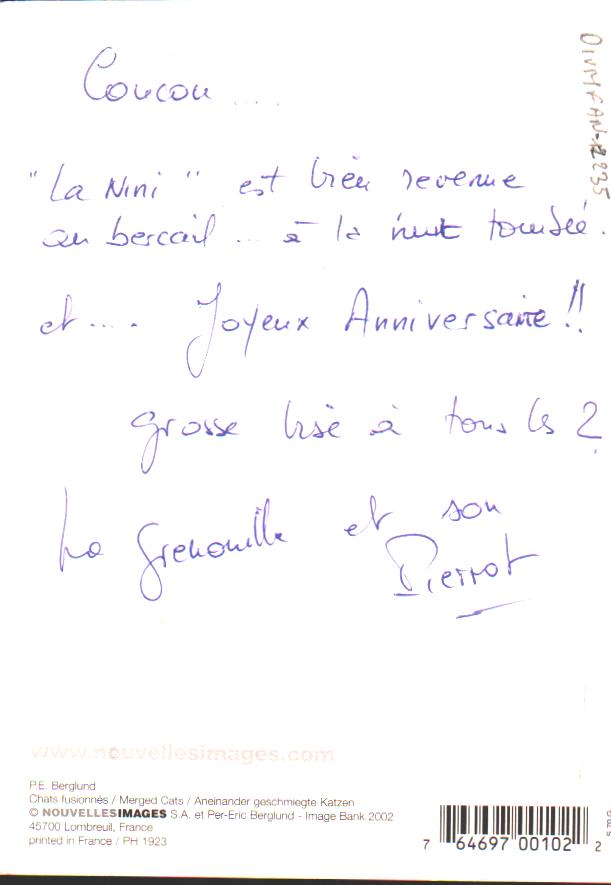 Coucou ....
"La Nini" est bien revenue
au bercail ... à la nuit tombée.
et .... Joyeux Anniversaire !!
grosse bise à tous les 2
La Grenouille et son
Pierrot
www.nouvellesimages.com
P.E. Berglund
Chats fusionnés / Merged Cats / Aneinander geschmiegte Katzen
© NOUVELLESIMAGES S.A. et Per-Eric Berglund - Image Bank 2002
45700 Lombreuil, France
printed in France / PH 1923
7 64697 00102 2